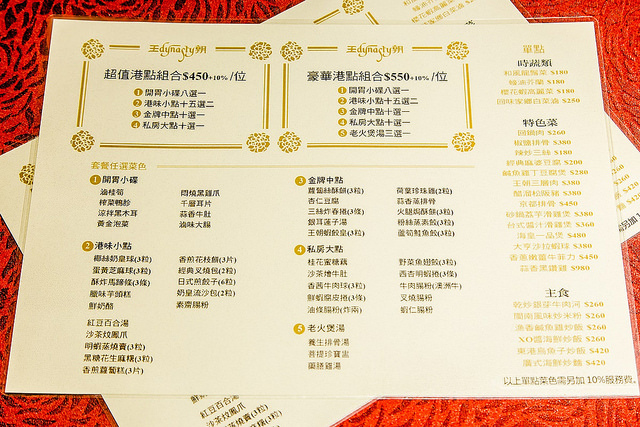 王dynasty朝
超值港點組合$450+10% /位
1 開胃小碟八選一
2 港味小點十五選二
3 金牌中點十選一
4 私房大點十選一
王dynasty朝
豪華港點組合$550+10% /位
1 開胃小碟八選一
2 港味小點十五選二
3 金牌中點十選一
4 私房大點十選一
5 老火煲湯三選一
套餐任選菜色
1 開胃小碟
滷桂筍
榨菜鴨胗
涼拌黑木耳
黃金泡菜
悶燒黑雞爪
千層耳片
蒜香牛肚
滷味大腸
2 港味小點
椰絲奶皇球(3粒)
蛋黃芝麻球(3粒)
酥炸馬蹄條(3條)
臘味芋頭糕
鮮奶酪
紅豆百合湯
沙茶炆鳳爪
明蝦蒸燒賣(3粒)
黑糖花生麻糬(3粒)
香煎蘿蔔糕(3片)
香煎花枝餅(3片)
經典叉燒包(2粒)
日式煎餃子(6粒)
奶皇流沙包(2粒)
素齋腸粉
3 金牌中點
蘿蔔絲酥餅(3粒)
杏仁豆腐
三絲炸春捲(3條)
銀耳蓮子湯
王朝蝦餃皇(3粒)
荷葉珍珠雞(2粒)
蒜香蒸排骨
火腿焗酥餅(3粒)
粉絲蒸素餃(3粒)
蘆筍鮭魚餃(3粒)
4 私房大點
桂花蜜糖藕
沙茶燴牛肚
香茜牛肉球(3粒)
鮮蝦腐皮捲(3條)
油條腸粉(炸兩)
野菜魚翅餃(3粒)
西杏明蝦捲(3條)
牛肉腸粉(澳洲牛)
叉燒腸粉
蝦仁腸粉
5 老火煲湯
養生排骨湯
菩提珍寶盅
藥膳雞湯
單點
時蔬類
$180
$180
櫻花蝦高麗菜 $180
$250
特色菜
回鍋肉 $260
椒鹽排骨 $380
辣炒三絲 $180
經典麻婆豆腐 $200
鹹魚雞丁豆腐煲 $280
王朝三腸肉 $380
醋溜松阪豬 $380
京都排骨 $450
$380
台式醬汁滑雞煲 $360
海皇一品煲 $480
大亨沙拉蝦球 $380
香蔥嫩薑牛菲力 $450
蒜香黑鑽雞 $980
主食
乾炒銀芽牛肉河 $260
閩南風味炒米粉 $260
薑香鹹魚雞炒飯 $260
XO醬海鮮炒飯 $260
東港烏魚子炒飯 $420
廣式海鮮炒麵 $420
以上單點菜色需另加 10%服務費。
紅豆百合湯
沙茶炆鳳爪